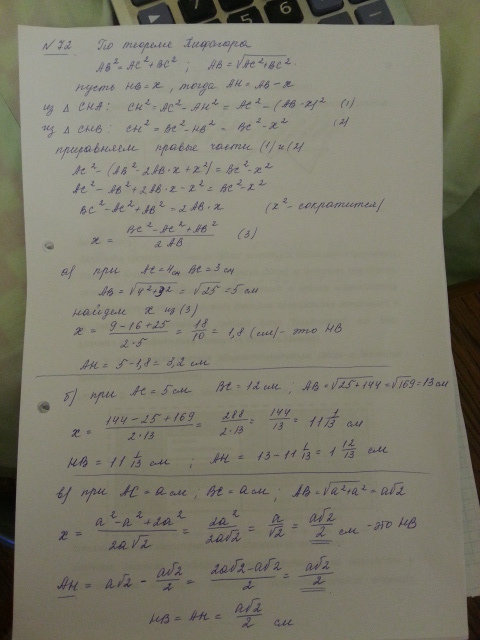 N 72 По теореме Пифагора
AB² = AC² + BC² ; AB = √(AC² + BC²).
пусть HB = x, тогда AH = AB - x
из △ CHA: CH² = AC² - AH² = AC² - (AB - x)² (1)
из △ CHB: CH² = BC² - HB² = BC² - x² (2)
приравняем правые части (1) и (2)
AC² - (AB² - 2AB·x + x²) = BC² - x²
AC² - AB² + 2AB·x - x² = BC² - x²
BC² - AC² + AB² = 2AB·x (x² - сократится)
x = (BC² - AC² + AB²) / 2AB (3)
а) при AC = 4см BC = 3см
AB = √(4² + 3²) = √25 = 5 см
найдем x из (3)
x = (9 - 16 + 25) / 2·5 = 18/10 = 1,8 (см) - это HB
AH = 5 - 1,8 = 3,2 см
б) при AC = 5см BC = 12см ; AB = √(25 + 144) = √169 = 13см
x = (144 - 25 + 169) / 2·13 = 288 / 2·13 = 144/13 = 11 1/13
HB = 11 1/13 см ; AH = 13 - 11 1/13 = 1 12/13 см
в) при AC = a см, BC = a см ; AB = √(a² + a²) = a√2
x = (a² - a² + 2a²) / 2a√2 = 2a² / 2a√2 = a/√2 = a√2/2 см - это HB
AH = a√2 - a√2/2 = (2a√2 - a√2)/2 = a√2/2
HB = AH = a√2/2 см